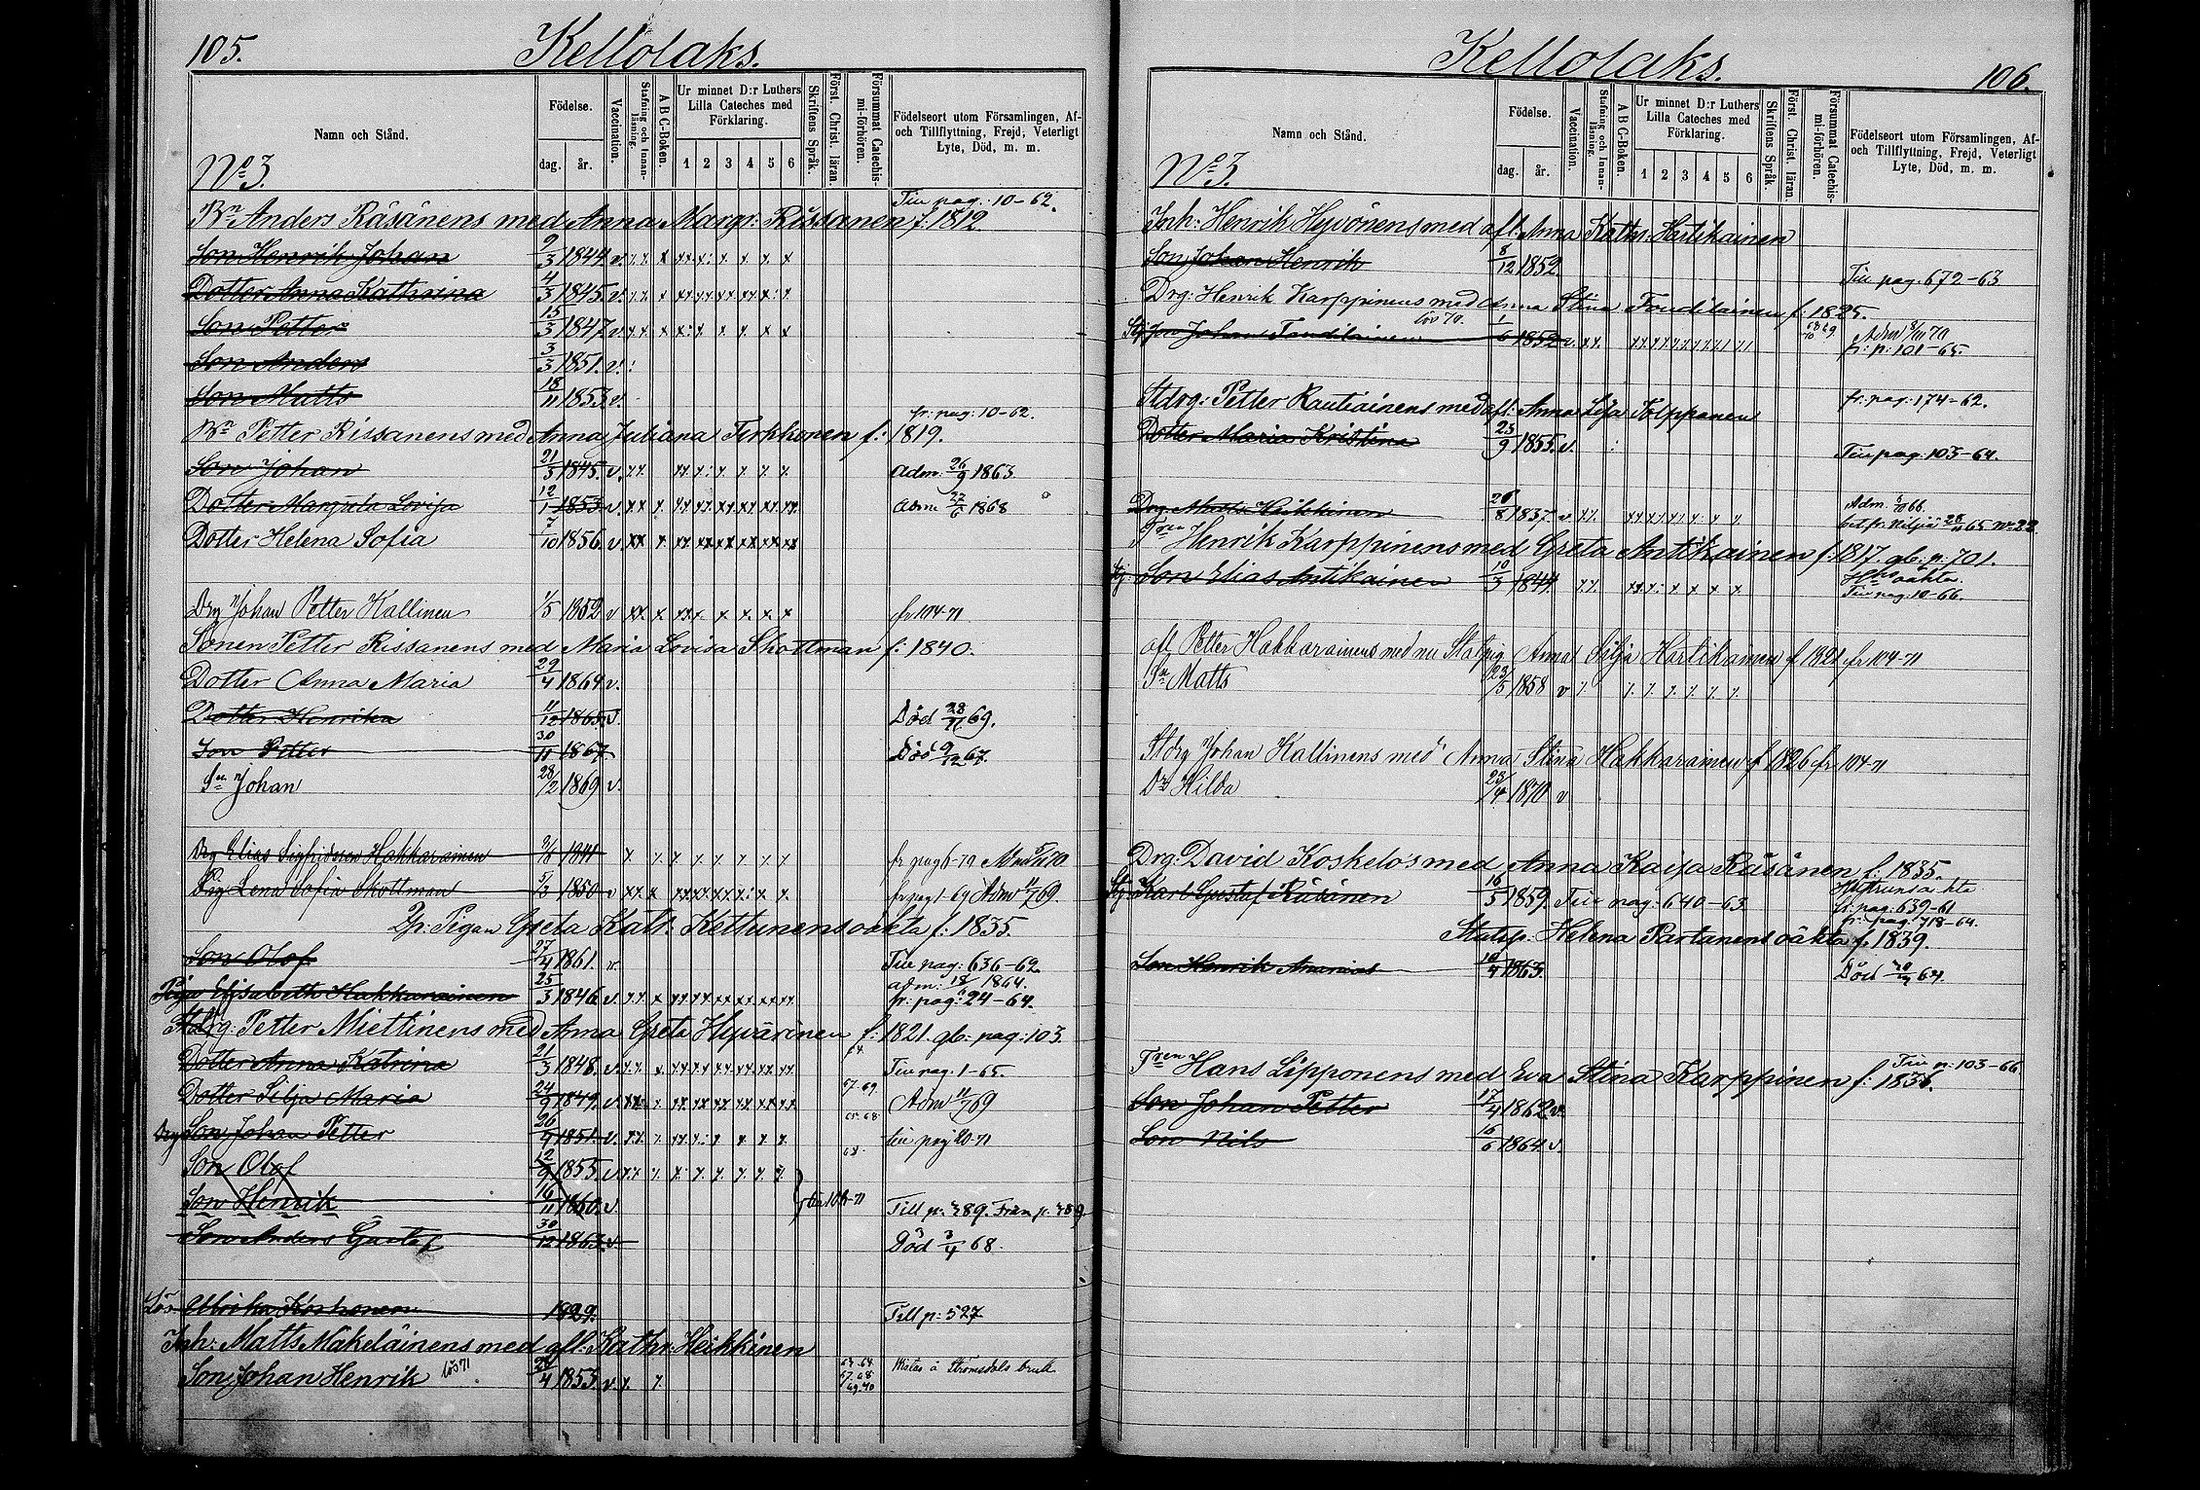 105.
Kellolaks.
Namn och Stånd.
Födelse.
dag. år.
Vaccination.
Stafning och Innanläsning.
A B C-Boken.
Ur minnet D:r Luthers Lilla Cateches med Förklaring.
1 2 3 4 5 6
Skriftens Språk.
Först. Christ. läran.
Försummat Catechismi-förhören.
Födelseort utom Församlingen, Af- och Tillflyttning, Frejd, Veterligt Lyte, Död, m. m.
No 3.
Tiu pag: 10-62.
Bn Anders Räsänens med Anna Margr: Rissanen f: 1812.
Son Henrik Johan 9/3 1844 v.
Dotter Anna Kathrina 4/3 1845. v.
Son Petter 15/3 1847. v.
Son Anders 3/3 1851. v.
Son Matts 18/11 1853. v.
fr: pag: 10-62.
Bn Petter Rissanens med Anna Juliana Tirkkonen f: 1819.
Son Johan 21/3 1845. v. Adm: 26/9 1863
Dotter Margreta Lovisa 12/1 1853 v. Adm 22/6 1868
Dotter Helena Sofia 7/10 1856. v
Drg Johan Petter Hallinen 1/5 1852 v fr 104-71
Sonen Petter Rissanens med Maria Lovisa Skottman f: 1840.
Dotter Anna Maria 29/4 1864 v.
Dotter Henrika 11/12 1865. v. Död 28/11 69.
Son Petter 30/11 1867 Död 9/12 67.
Sn Johan 28/2 1869 v.
Drg Elias Sigfridsson Hakkarainen 1841 fr pag 6-70
Pig Lena Sofia Skottman 5/3 1850 v fr pag 1-69 Adm 11/7 69.
Pigan Greta Kath: Kettunens oäkta f: 1835.
Son Olof 27/4 1861. v. Tiu pag: 636-62
Piga Elisabeth Hakkarainen 25/3 1846. v. adm: 18/6 1864. fr: pag: 24-64.
Stdrg: Petter Miettinens med Anna Greta Hyvärinen f: 1821. gb: pag: 103.
Dotter Anna Katrina 21/3 1848. v. Tiu pag. 1-65.
Dotter Silja Maria 24/9 1849. v. 67. 69. Adm 11/7 69
Drg Son Johan Petter 26/9 1851. v. 65. 68. tiu pag 20-71
Son Olof 12/9 1855. v. 68.
Son Henrik 16/11 1860. v. Till p: 789. Från p. 789.
Son Anders Gustaf 30/12 1863. v. Död 3/4 68.
Lös Ulrika Koskonen 1829. Till p: 527
Inh: Matts Mäkeläinens med afl: Kathr: Heikkinen
Son Johan Henrik lös 71 28/4 1853. v. 63. 64. 67. 68 69. 70 Wistas å Strömsdals bruk

Kellolaks.
106.
Namn och Stånd.
Födelse.
dag. år.
Vaccination.
Stafning och Innanläsning.
A B C-Boken.
Ur minnet D:r Luthers Lilla Cateches med Förklaring.
1 2 3 4 5 6
Skriftens Språk.
Först. Christ. läran.
Försummat Catechismi-förhören.
Födelseort utom Församlingen, Af- och Tillflyttning, Frejd, Veterligt Lyte, Död, m. m.
No 3.
Inh: Henrik Hyvönens med afl. Anna Kathr: Hartikainen
Son Johan Henrik 8/12 1852. Tiu pag. 672-63
Drg: Henrik Karppinens med Anna Stina Tanditainen f: 1825.
Johan Tanditainen lös 70. 1/6 1852 v. fr: p: 101-65.
Stdrg: Petter Rautiainens med afl: Anna Lisa Tolppanen fr: pag: 174-62.
Dotter Maria Kristina 23/9 1855. v. Tiu pag: 103-64.
Drg Matts Heikkinen 26/8 1837. v. Adm. bet. fr. Nilsiä 65 No 22
Tren Henrik Karppinens med Greta Antikainen f: 1817. gb. p: 701.
Son Elias Antikainen 10/3 1844. oäkta. Tiu pag: 10-66.
afl Petter Hakkarainens med nu Statpig Anna Silja Hartikainen f 1821 fr 104-71
Sn Matts 23/5 1858 v
Stdrg Johan Hallinens med Anna Stina Hakkarainen f 1826 fr 104-71
Dr Hilda 23/4 1870 v
Drg: David Koskelos med Anna Kaisa Räsänen f: 1835.
Karl Gustaf Räsänen 16/5 1859. Tiu pag: 640-63. fr: pag: 639-61
fr: pag: 718-64.
Statsp. Helena Partanens oäkta f. 1839.
Son Henrik Ananias 10/4 1863. Död 64.
Tiu p: 103-66.
Tren Hans Lipponens med Eva Stina Karppinen f: 1836.
Son Johan Petter 17/4 1862. v.
Son Nils 16/6 1864. v.